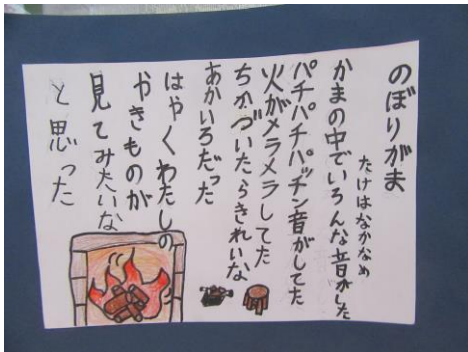 のぼりがま
たけはなかなめ
かまの中でいろんな音がした
パチパチパッチン音がしてた
火がメラメラしてた
ちかづいたらきれいな
あかいろだった
はやくわたしの
やきものが
見てみたいな
と思った